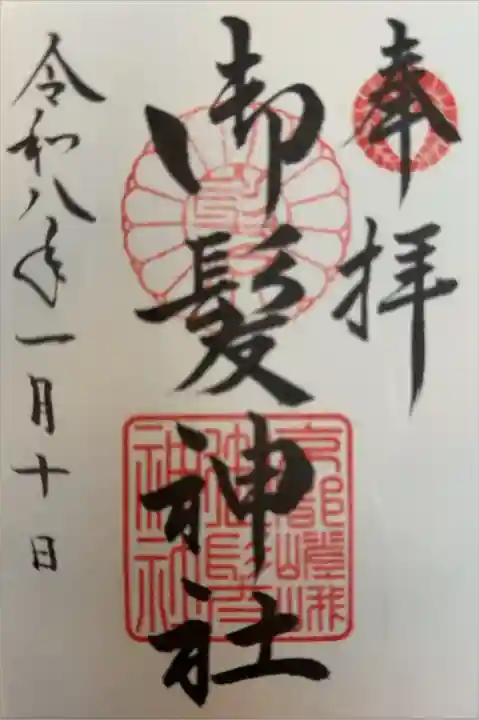 奉拝
御髪神社
京都嵯峨
御髪
神社
令和八年一月十日